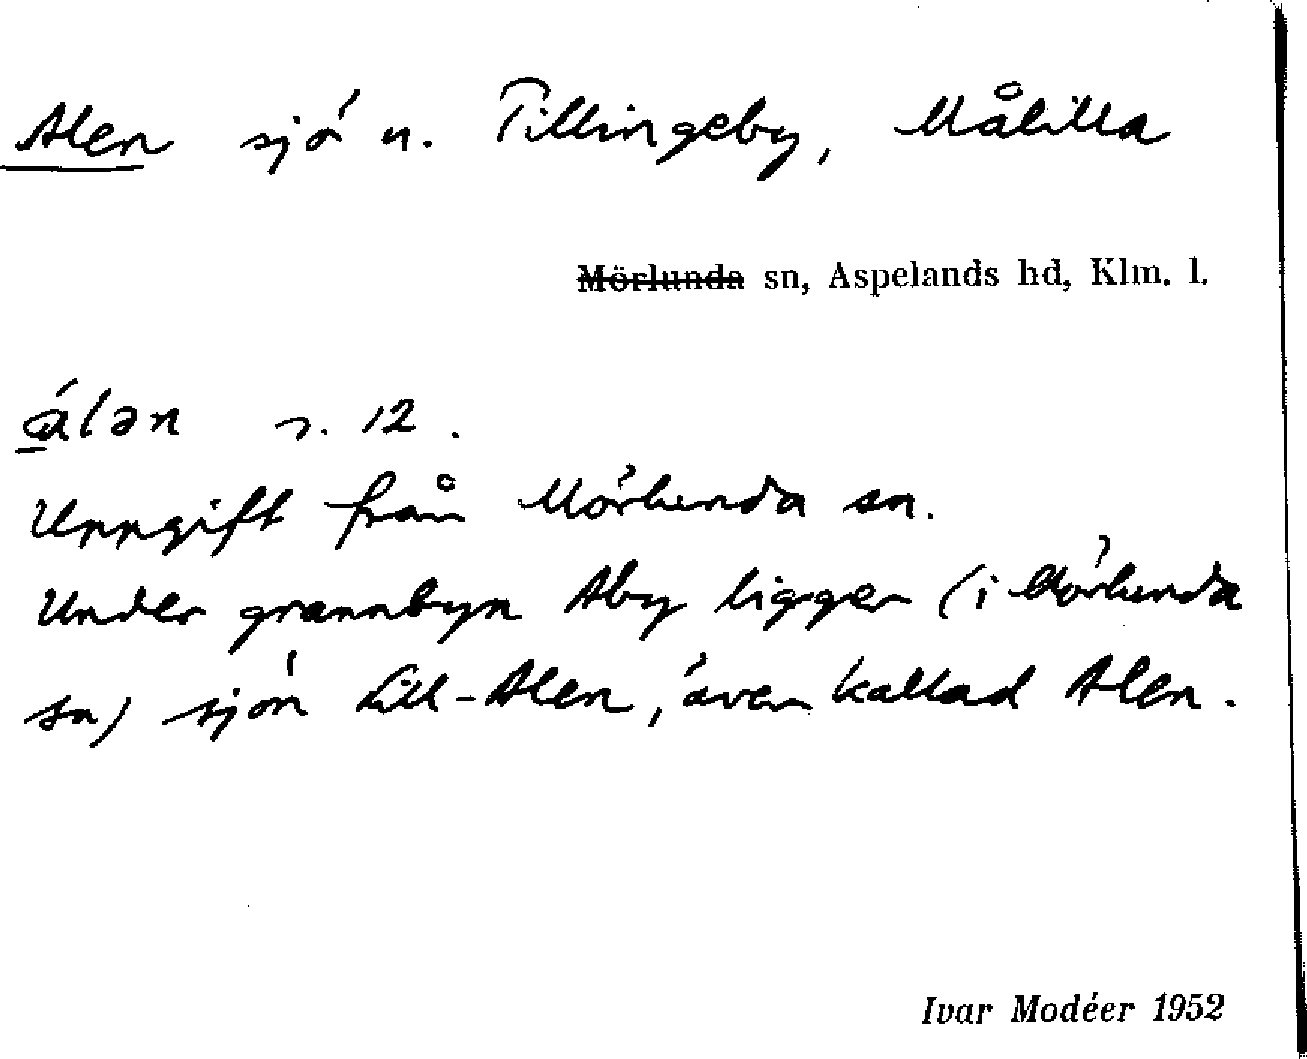 Alen sjö u. Tillingeby, Målilla
~~Mörlunda~~ sn, Aspelands hd, Klm. l.
álən s. 12.
Uppgift från Mörlunda sn.
Under grannbyn Åby ligger (i Mörlunda
sn) sjön Lill-Alen, även kallad Alen.
Ivar Modéer 1952